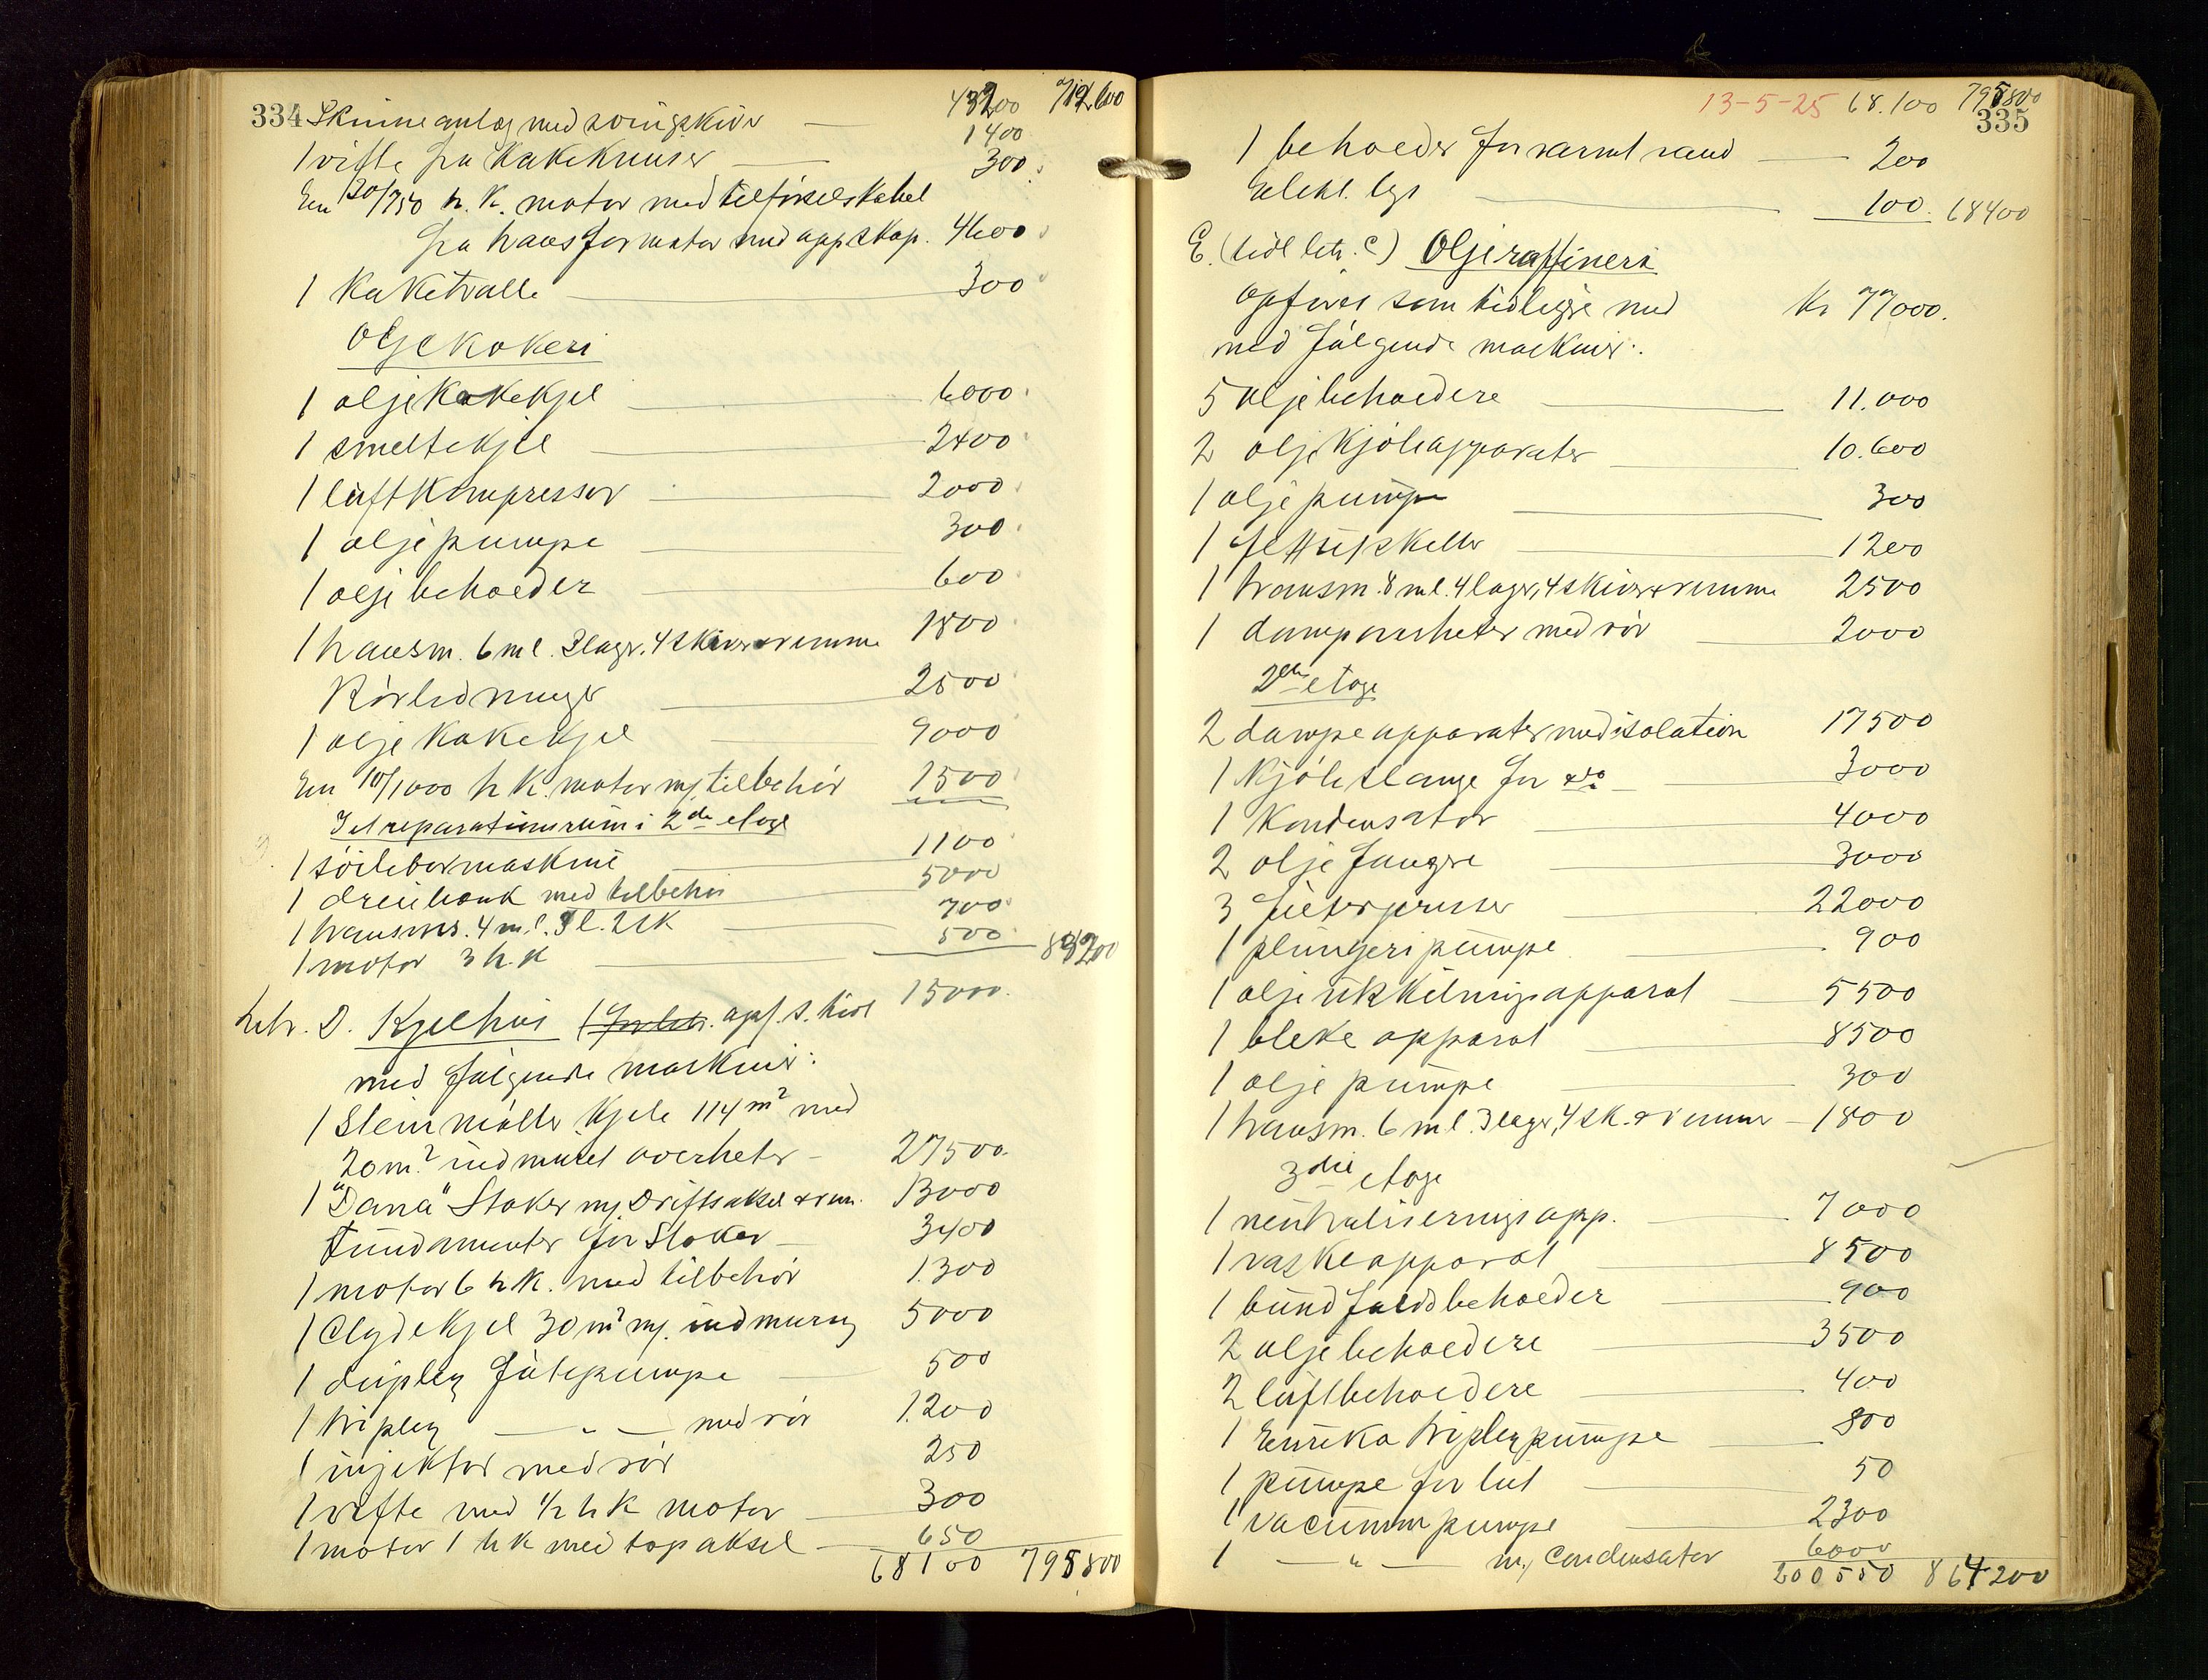 334 43200 712600
Skinneanlæg med svingskiver — 1400
1 vifte fra kakeknuser — 300
En 20/750 h.k. motor med tilførselskabel
fra transformator med app.skap. 4600
1 Kaketralle — 300
Oljekokeri
1 oljekokekjel — 6000
1 smeltekjel — 2400
1 luftkompressor — 2000
1 oljepumpe — 300
1 oljebeholder — 600
1 transm. 6 m l. 3 lager, 4 skiver & remme 1800
Rörledninger — 2500
1 oljekokekjel — 9000
En 10/1000 h k. motor m/ tilbehör 1500
I et reparationsrum i 2den etage
1 söileboremaskine — 1100
1 dreiebænk med tilbehör — 5000
1 transms. 4 m. l. 3 l. 2 sk — 700
1 motor 3 h.k — 500 83200
Litr. D. Kjelhus (for litr. opf. s. tidl 15000.
med følgende maskiner:
1 Steinmüller kjele 114 m² med
20 m² indmuret overheter — 27500
1 "Dana" Stoker m/ Driftsaksel & rem. 13000
Fundamenter for Stoker — 3400
1 motor 6 h k. med tilbehör 1.300
1 Clydekjel 30 m² m/ indmuring 5000
1 duplex födepumpe — 500
1 triplex — " — med rör 1.200
1 injektor med rör 250
1 vifte med 1/2 h k motor — 300
1 motor 1 h k med topaksel — 650
68100 795800
13-5-25 68.100 795800
335
1 beholder for varmt vand — 200
Elekt. lys — 100. 68400
E. (tidl litr. C) Oljeraffineri
opføres som tidligere med Kr 77000.
med følgende maskiner:
5 oljebeholdere — 11.000
2 oljekjöleapparater — 10.600
1 oljepumpe — 300
1 fettutskiller — 1200
1 transm. 8 m l. 4 lager, 4 skiver & remme 2500
1 dampoverheter med rör — 2000
2den etage
2 dampeapparater med isolation 17500
1 kjöleslange for do — 3000
1 Kondensator — 4000
2 oljefangere — 3000
3 filterpresser — 22000
1 plungerpumpe — 900
1 oljeutskilningsapparat — 5500
1 bleke apparat — 8500
1 oljepumpe — 300
1 transm. 6 m l. 3 lager, 4 sk. & remmer — 1800
3die etage
1 neutraliseringsapp. — 7000
1 vaskeapparat — 8500
1 bundfaldsbeholder — 900
2 oljebeholdere — 3500
2 luftbeholdere — 400
1 Eureka triplexpumpe — 800
1 pumpe for lut — 50
1 vacuumpumpe — 2300
1 — " — m/ Condensator 6000
200550 864200